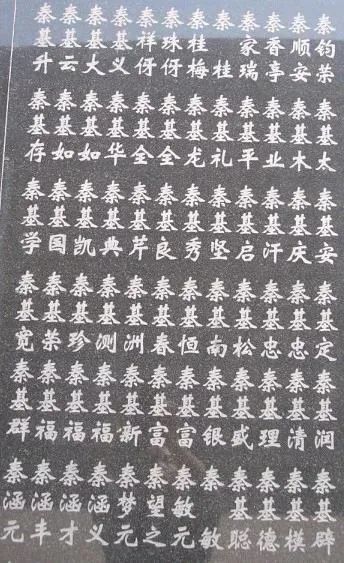 秦钧荣
秦顺安
秦香亭
秦家瑞
秦桂
秦桂梅
秦珠伢
秦祥伢
秦基义
秦基大
秦基云
秦基升
秦基太
秦基木
秦基业
秦基平
秦基礼
秦基龙
秦基全
秦基全
秦基华
秦基如
秦基如
秦基存
秦基安
秦基庆
秦基汗
秦基启
秦基坚
秦基秀
秦基良
秦基芹
秦基典
秦基凯
秦基国
秦基学
秦基定
秦基忠
秦基忠
秦基松
秦基南
秦基恒
秦基春
秦基洲
秦基测
秦基珍
秦基荣
秦基宽
秦基润
秦基清
秦基理
秦基盛
秦基银
秦基富
秦基富
秦基新
秦基福
秦基福
秦基福
秦基群
秦基辟
秦基模
秦基德
秦基聪
秦敏
秦敏元
秦望之
秦梦元
秦涵义
秦涵才
秦涵丰
秦涵元